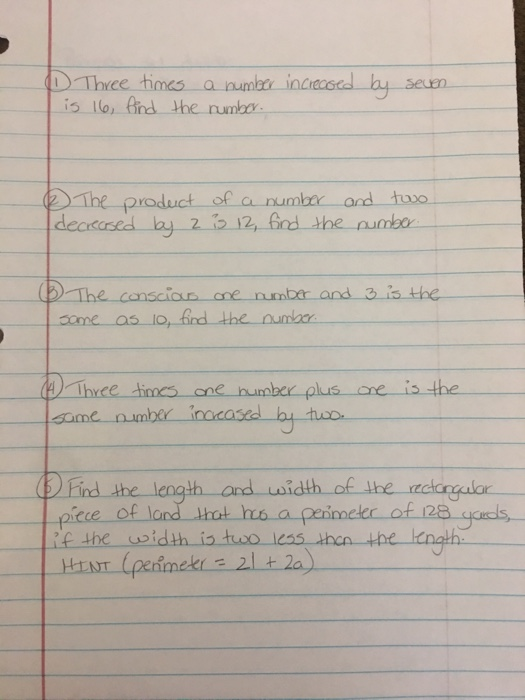 ① Three times a number increased by seven
is 16, find the number.
② The product of a number and two
decreased by 2 is 12, find the number.
③ The conscious one number and 3 is the
same as 10, find the number.
④ Three times one number plus one is the
same number increased by two.
⑤ Find the length and width of the rectangular
piece of land that has a perimeter of 128 yards,
if the width is two less than the length.
HINT (perimeter = 2l + 2a)